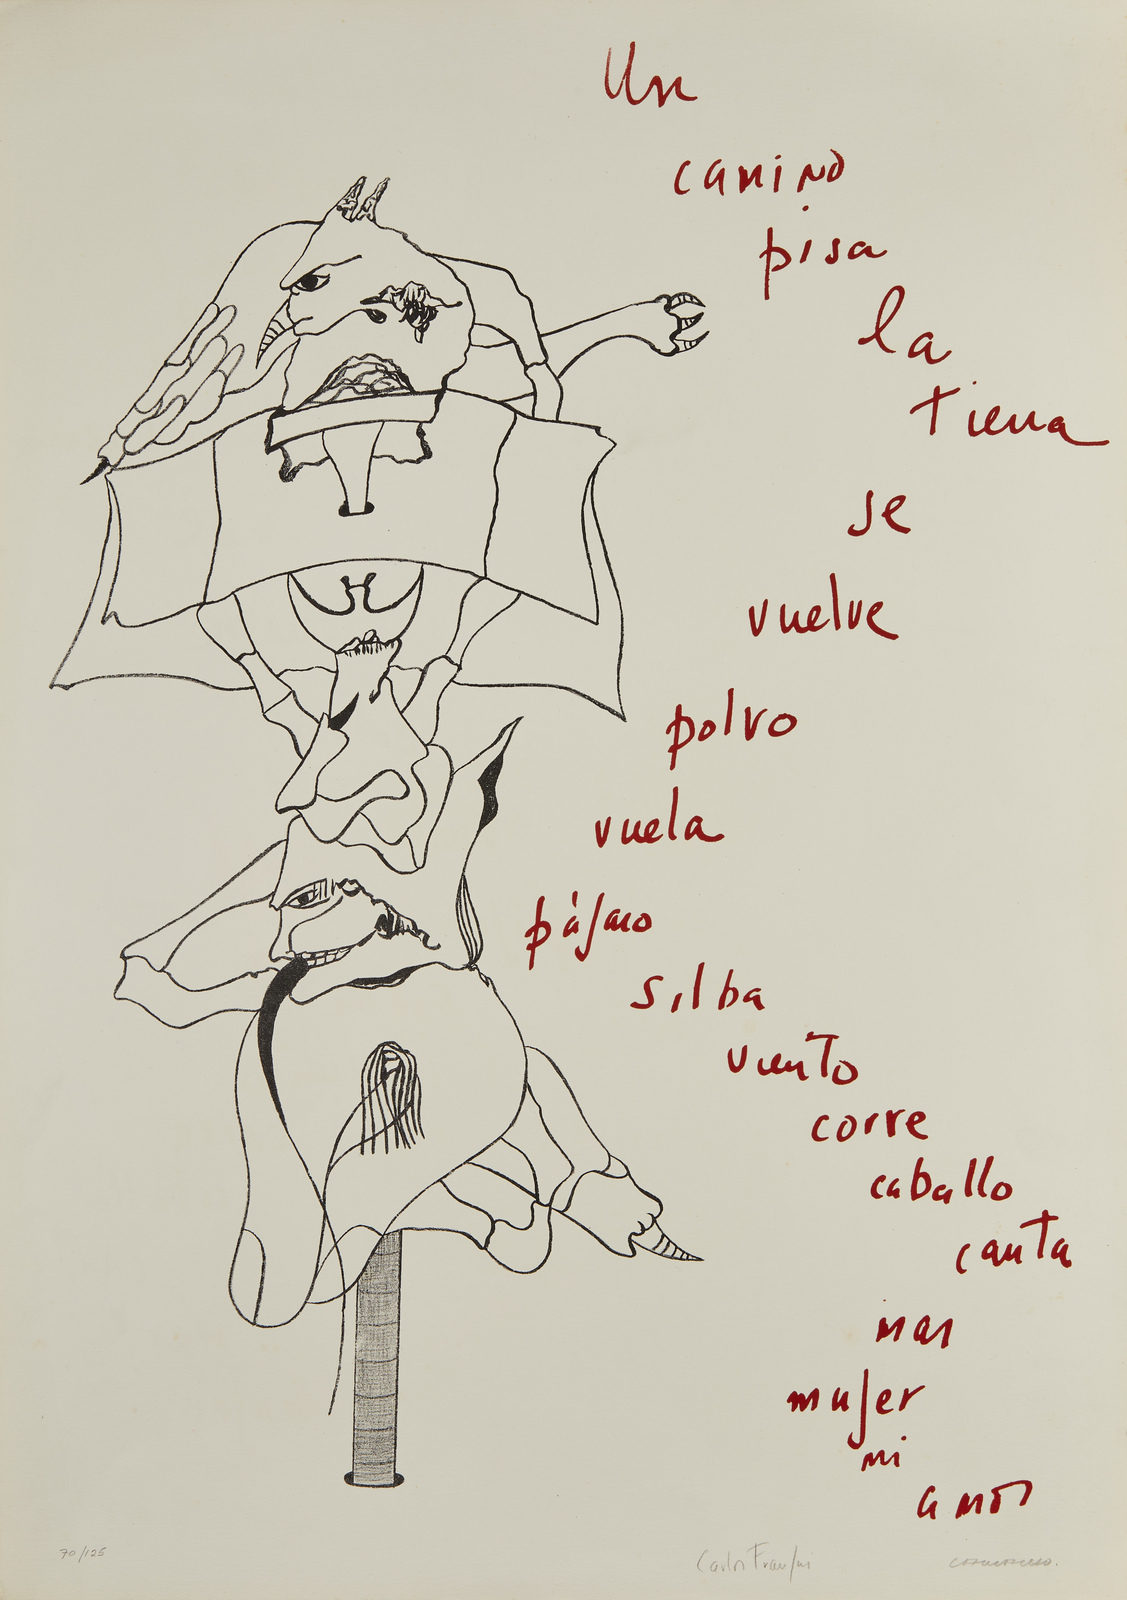 Un
camino
pisa
la
tierra
se
vuelve
polvo
vuela
pájaro
silba
viento
corre
caballo
canta
mar
mujer
mi
amor
70/125 Carlos Franqui